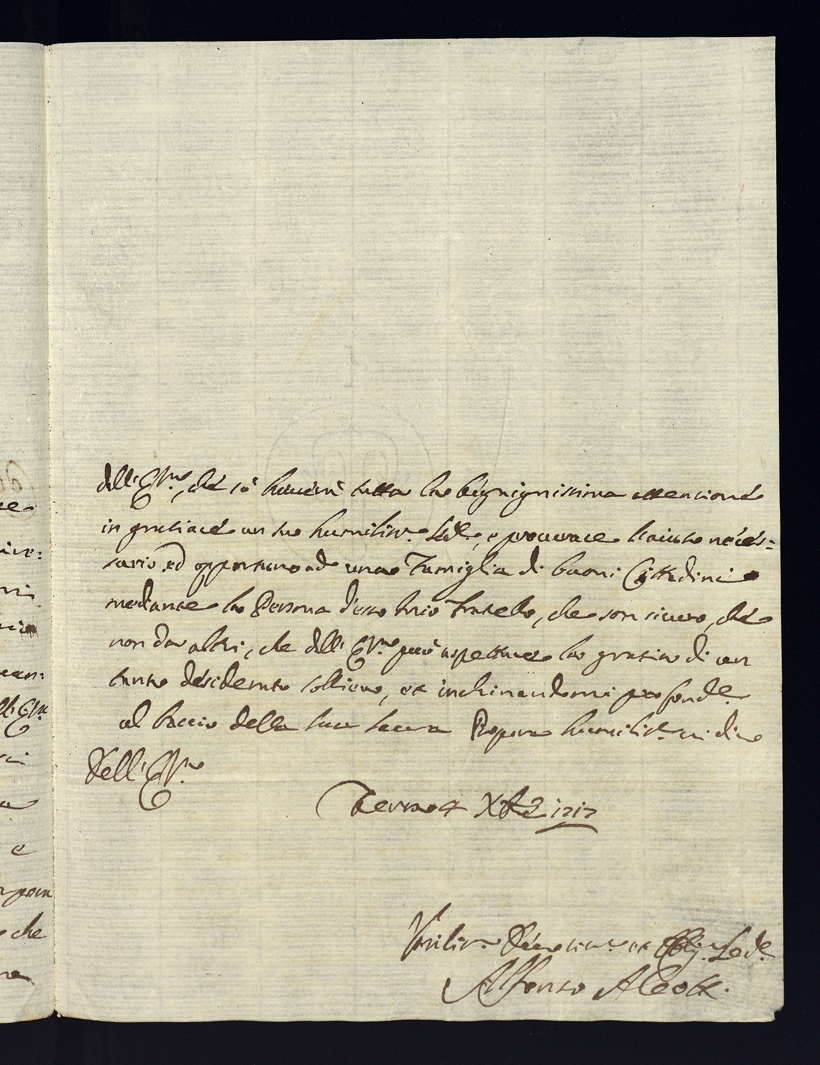 dell'Em.ᵐᵒ, che sò haverà tutta la benignissima attentione
in gratiare un suo humiliss.º Ser.ᵉ, e procurare l'aiuto neces=
sario ed opportuno ad una Famiglia di buoni Cittadini
mediante la Persona d'esso mio Fratello, che son sicuro, che
non da altri, che dall'Em.ᵐᵒ può aspettare la gratia di un
tanto desiderato sollievo, et inchinandomi profond.ᵉ
al baccio della sua sacra Porpora humiliss.º mi dico
Dell'Em.ᵐᵒ
4 Xbre 1717
Humiliss.º Devotiss.º et Oblig.ᵐᵒ Ser.ᵉ
Alfonso